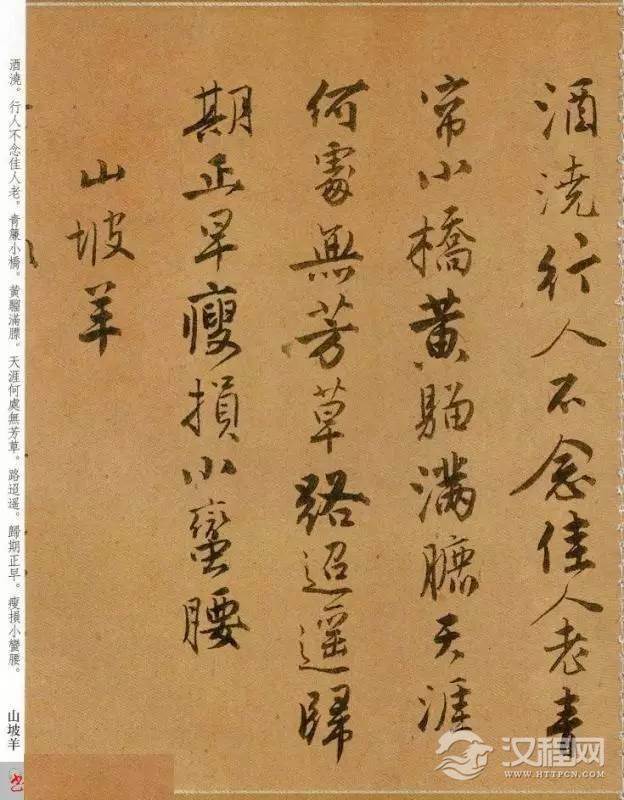 酒澆行人不念佳人老青
帘小橋黃騮滿臕天涯
何處無芳草路迢遥歸
期正早瘦損小蠻腰
山坡羊
酒澆。行人不念佳人老。青簾小橋。黃騮滿臕。天涯何處無芳草。路迢遥。歸期正早。瘦損小蠻腰。 山坡羊
汉程网
WWW.HTTPCN.COM